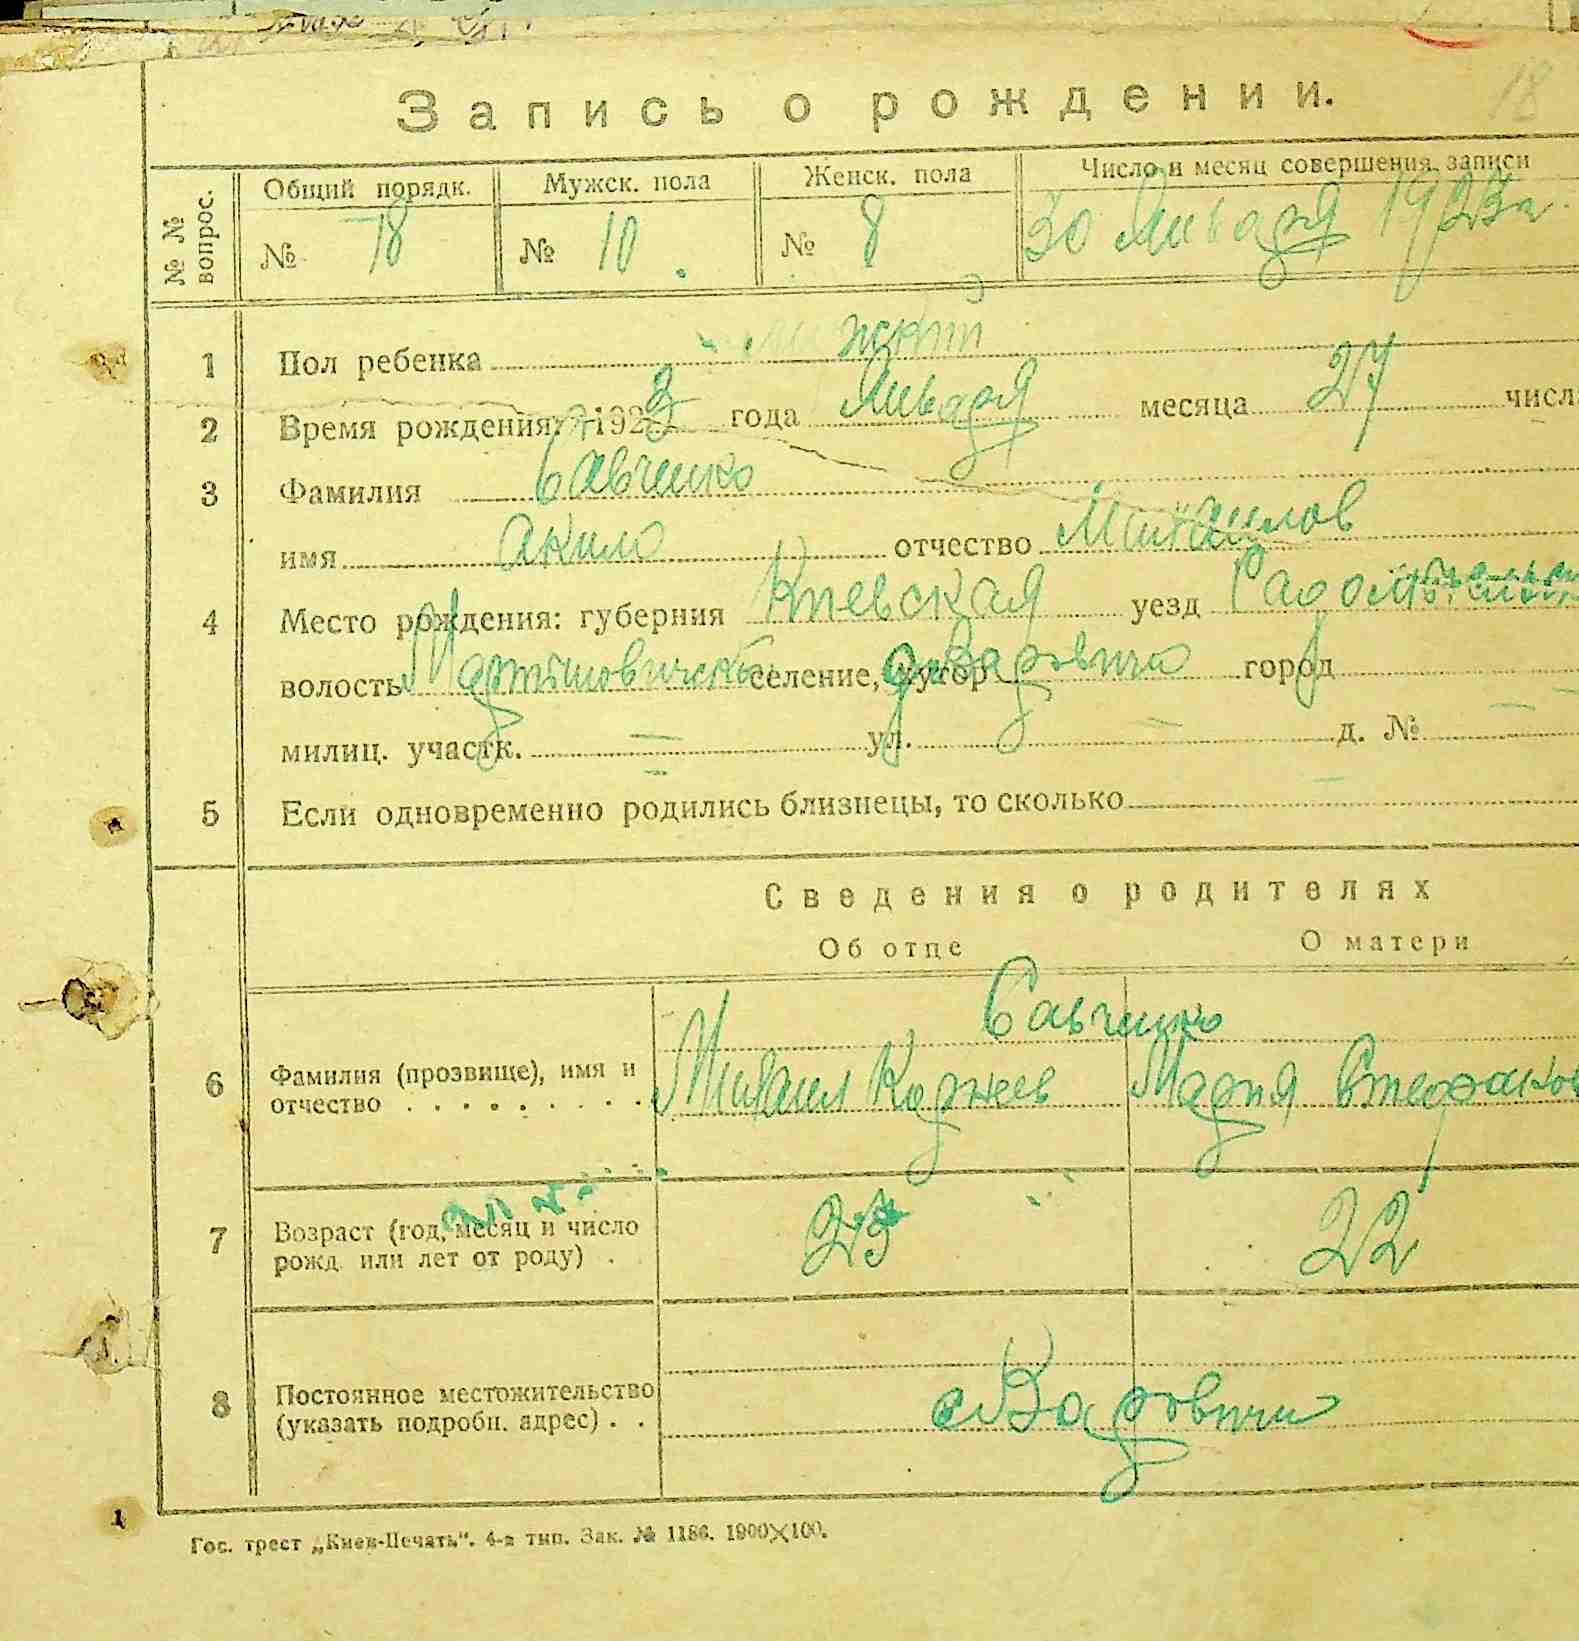 18
Запись о рождении.
№ № вопрос.
Общий порядк. Мужск. пола Женск. пола Число и месяц совершения записи
№ 18 № 10 № 8 30 Января 1923 г.
1 Пол ребенка мужской
2 Время рождения: 1923 года Января месяца 27 числа
3 Фамилия Савченко
имя Акило отчество Михаилов
4 Место рождения: губерния Киевская уезд
волость Мартыновичская селение, хутор Варовичи город
милиц. участк. — ул. — д. № —
5 Если одновременно родились близнецы, то сколько —
Сведения о родителях
Об отце О матери
Савченко
6 Фамилия (прозвище), имя и отчество . . . . . . . . . Михаил Корнеев Мария Стефанов
7 Возраст (год, месяц и число рожд. или лет от роду) . 23 22
8 Постоянное местожительство (указать подробн. адрес) . . с Варовичи
1
Гос. трест „Киев-Печать“. 4-я тип. Зак. № 1186. 1900×100.